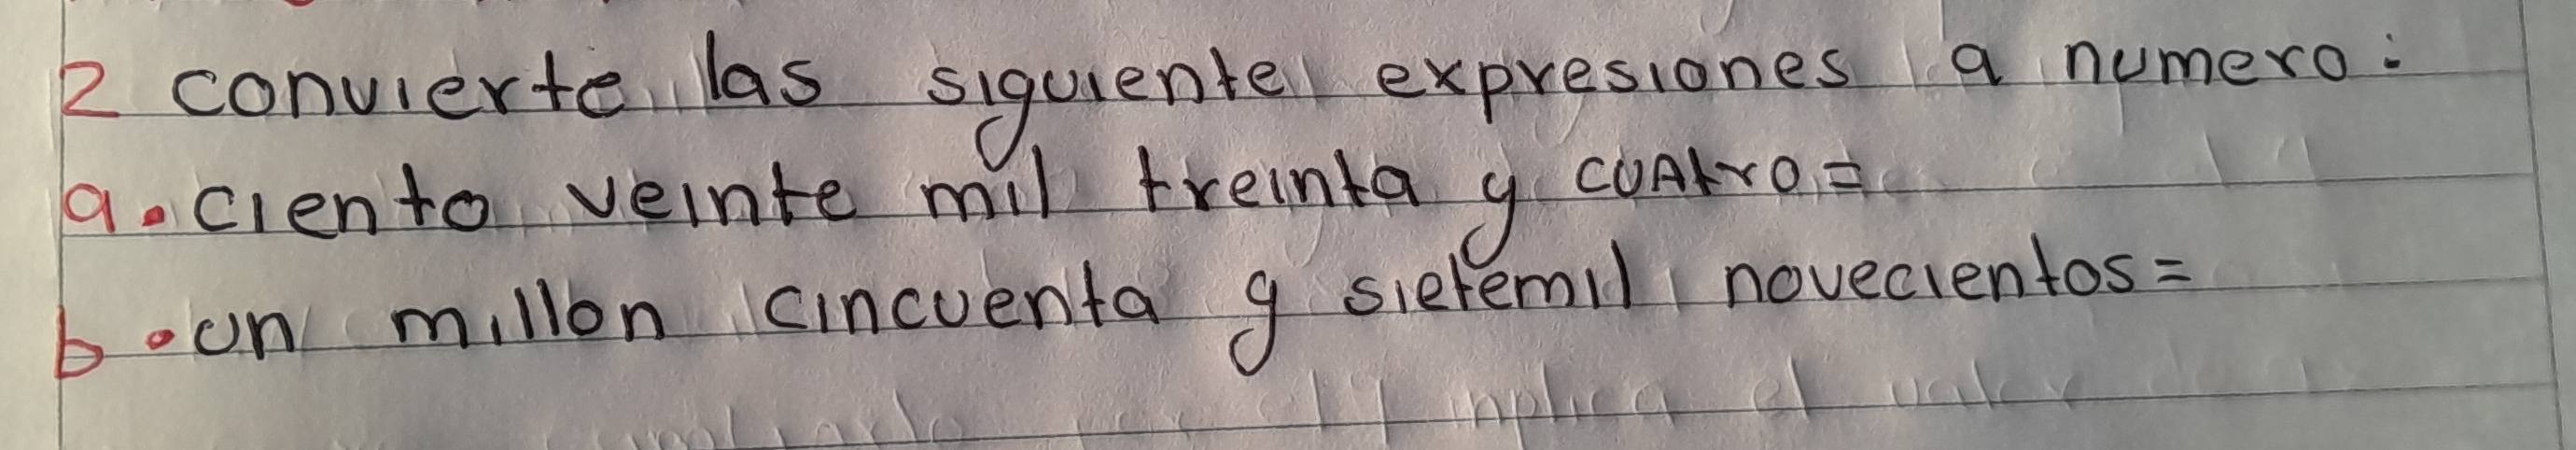 2 convierte las siguiente expresiones a numero:
a. ciento veinte mil treinta y cuatro=
b. un millon cincuenta y sietemil novecientos=
inplica el valor